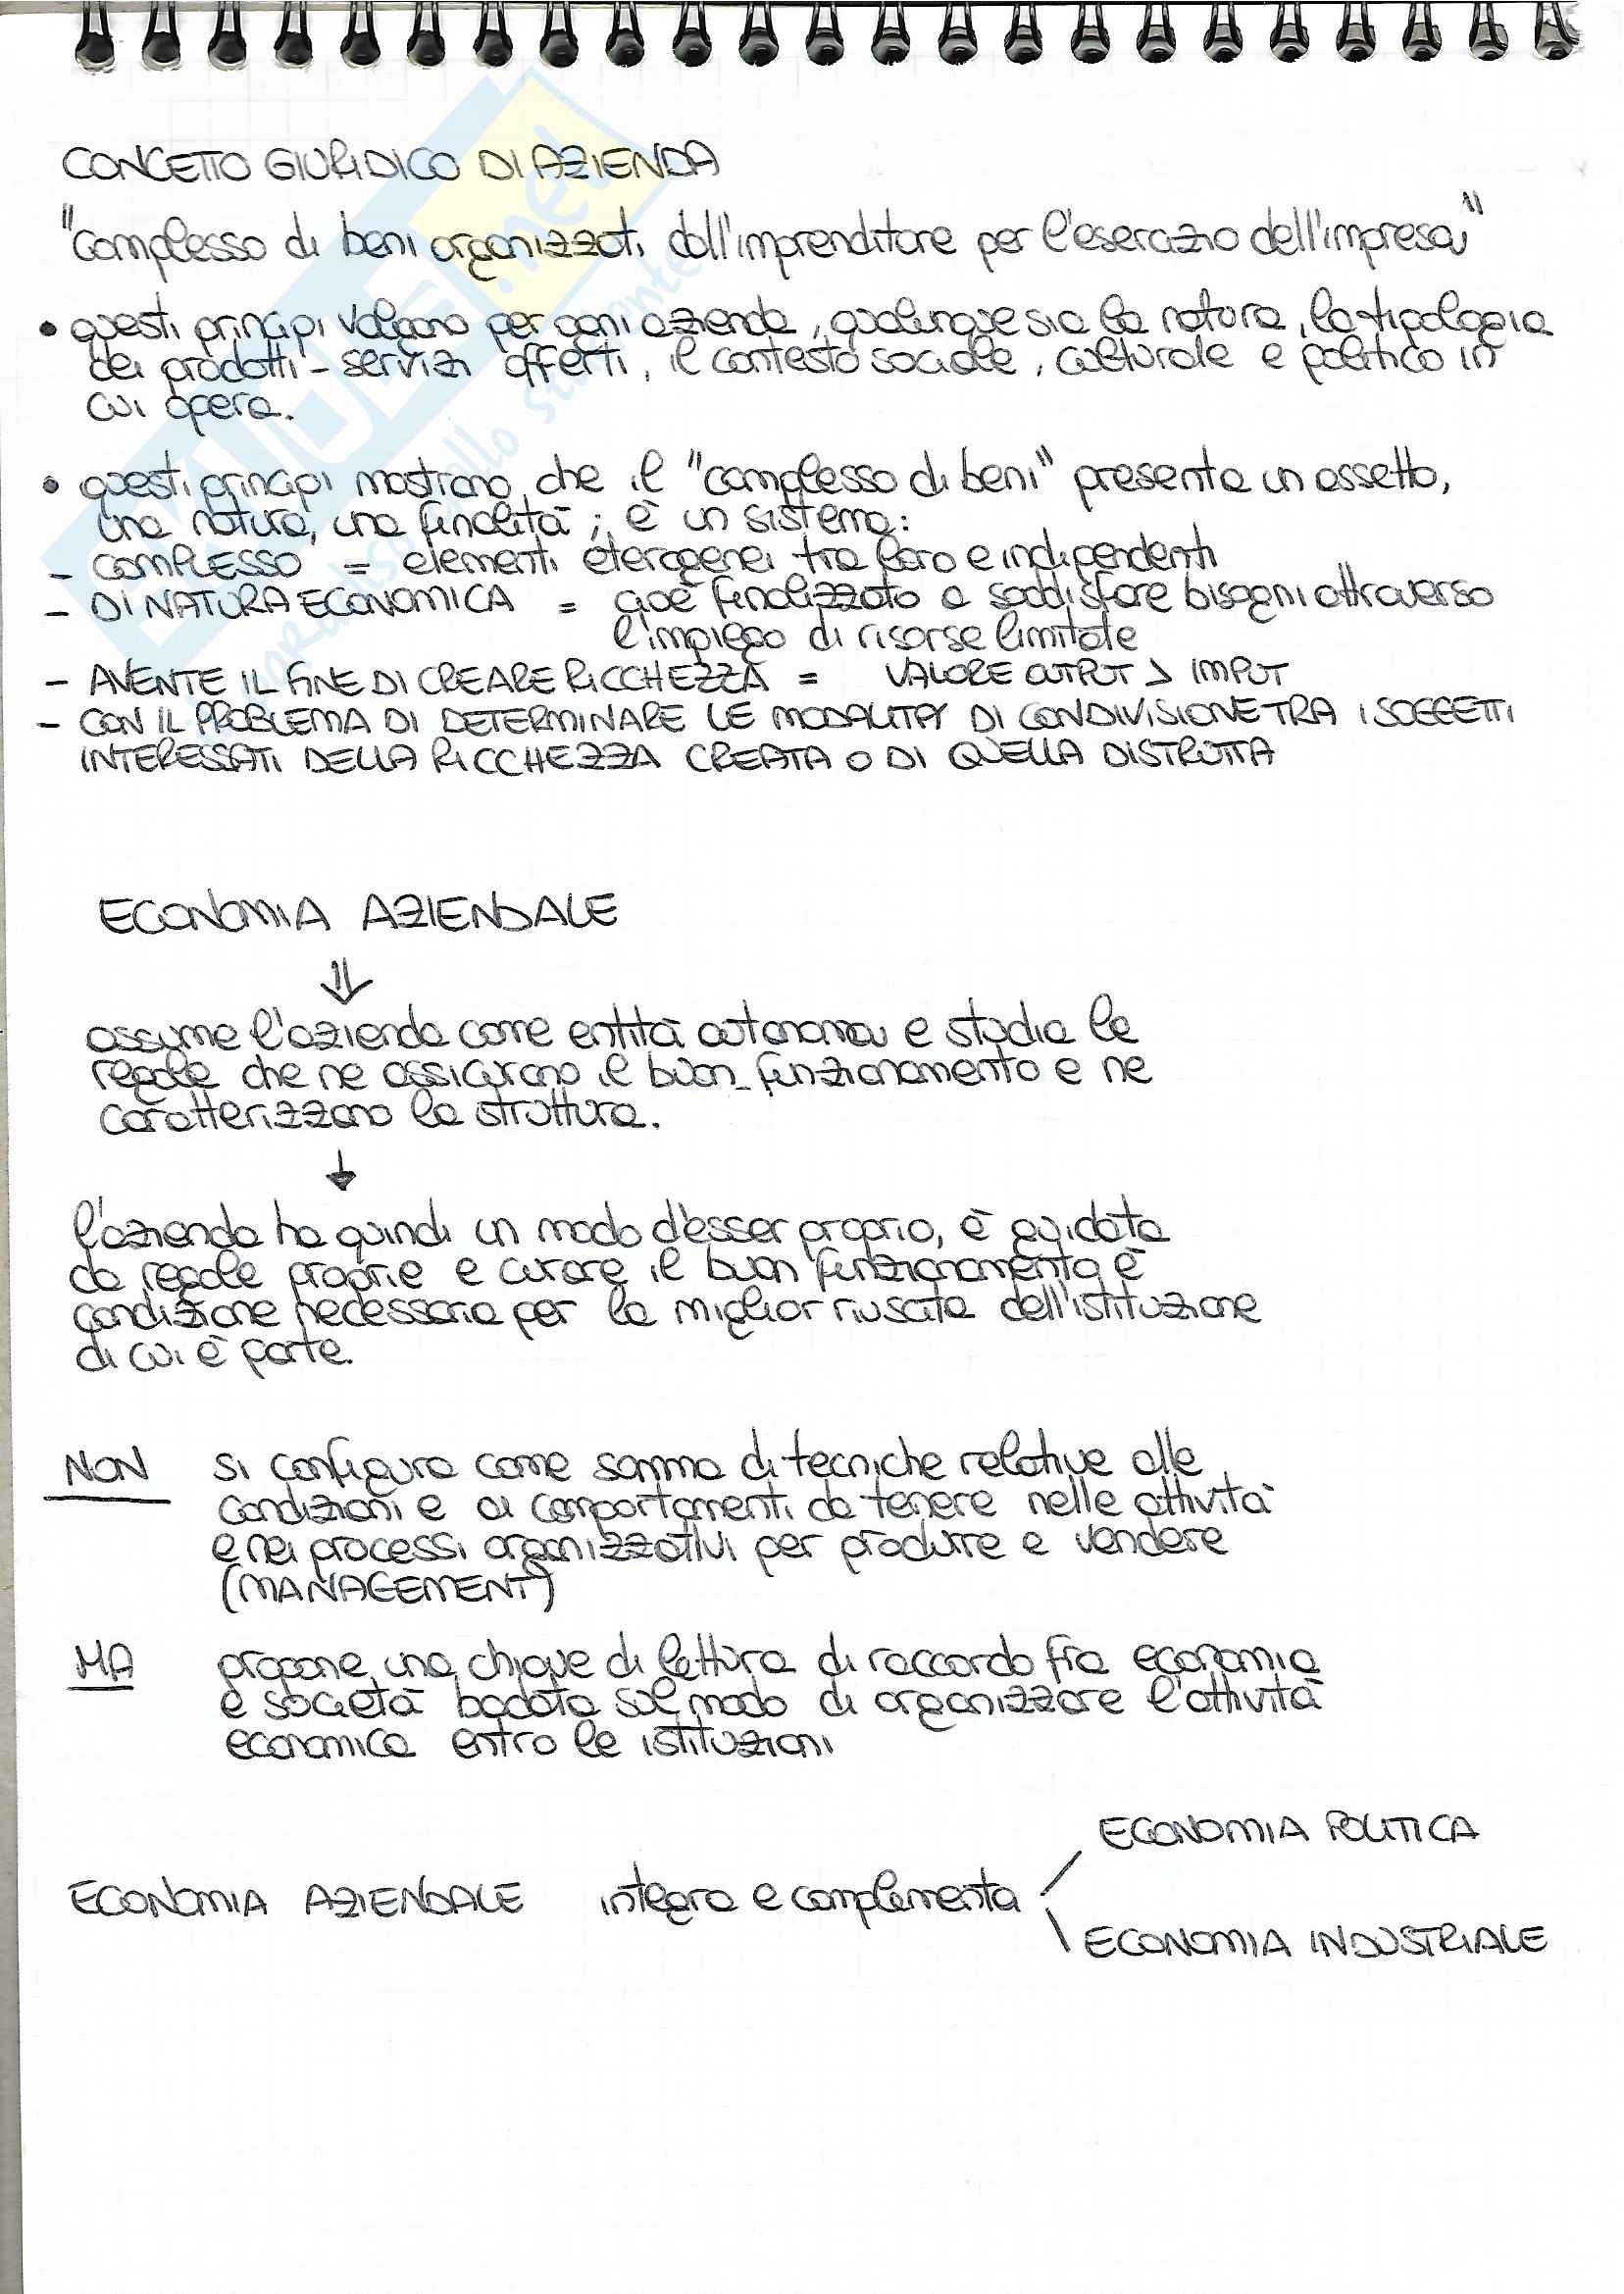 CONCETTO GIURIDICO DI AZIENDA
"complesso di beni organizzati dall'imprenditore per l'esercizio dell'impresa"
• questi principi valgono per ogni azienda, qualunque sia la natura, la tipologia
dei prodotti - servizi offerti, il contesto sociale, culturale e politico in
cui opera.
• questi principi mostrano che il "complesso di beni" presenta un assetto,
una natura, una finalità; è un sistema:
- COMPLESSO = elementi eterogenei tra loro e indipendenti
- DI NATURA ECONOMICA = cioè finalizzato a soddisfare bisogni attraverso
l'impiego di risorse limitate
- AVENTE IL FINE DI CREARE RICCHEZZA = VALORE OUTPUT > IMPUT
- CON IL PROBLEMA DI DETERMINARE LE MODALITA' DI CONDIVISIONE TRA I SOGGETTI
INTERESSATI DELLA RICCHEZZA CREATA O DI QUELLA DISTRUTTA
ECONOMIA AZIENDALE
⇓
assume l'azienda come entità autonoma e studia le
regole che ne assicurano il buon funzionamento e ne
caratterizzano la struttura.
↓
l'azienda ha quindi un modo d'esser proprio, è guidata
da regole proprie e curare il buon funzionamento è
condizione necessaria per la miglior riuscita dell'istituzione
di cui è parte.
NON si configura come somma di tecniche relative alle
condizioni e ai comportamenti da tenere nelle attività
e nei processi organizzativi per produrre e vendere
(MANAGEMENT)
MA propone una chiave di lettura di raccordo fra economia
e società badata sul modo di organizzare l'attività
economica entro le istituzioni
ECONOMIA POLITICA
ECONOMIA AZIENDALE integra e complementa
ECONOMIA INDUSTRIALE